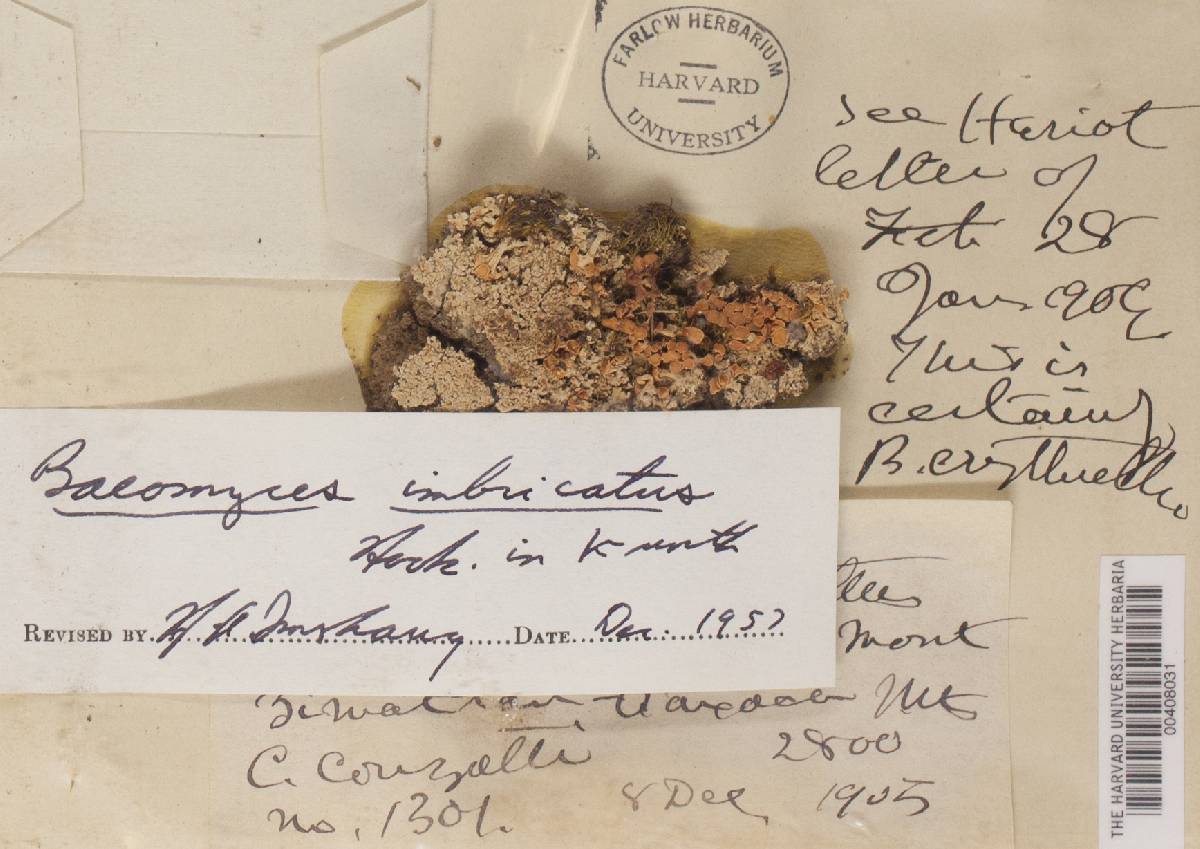 FARLOW HERBARIUM
HARVARD
UNIVERSITY
see Hariot
letter of
Feb 28
1909
This is
certainly
B. erythrella
Baeomyces imbricatus
Hook. in Kunth
REVISED BY H A Imshaug DATE Dec. 1957
Mont
Mts
C. Conzatti 2800
no. 1301. 8 Dec 1905
THE HARVARD UNIVERSITY HERBARIA
00408031